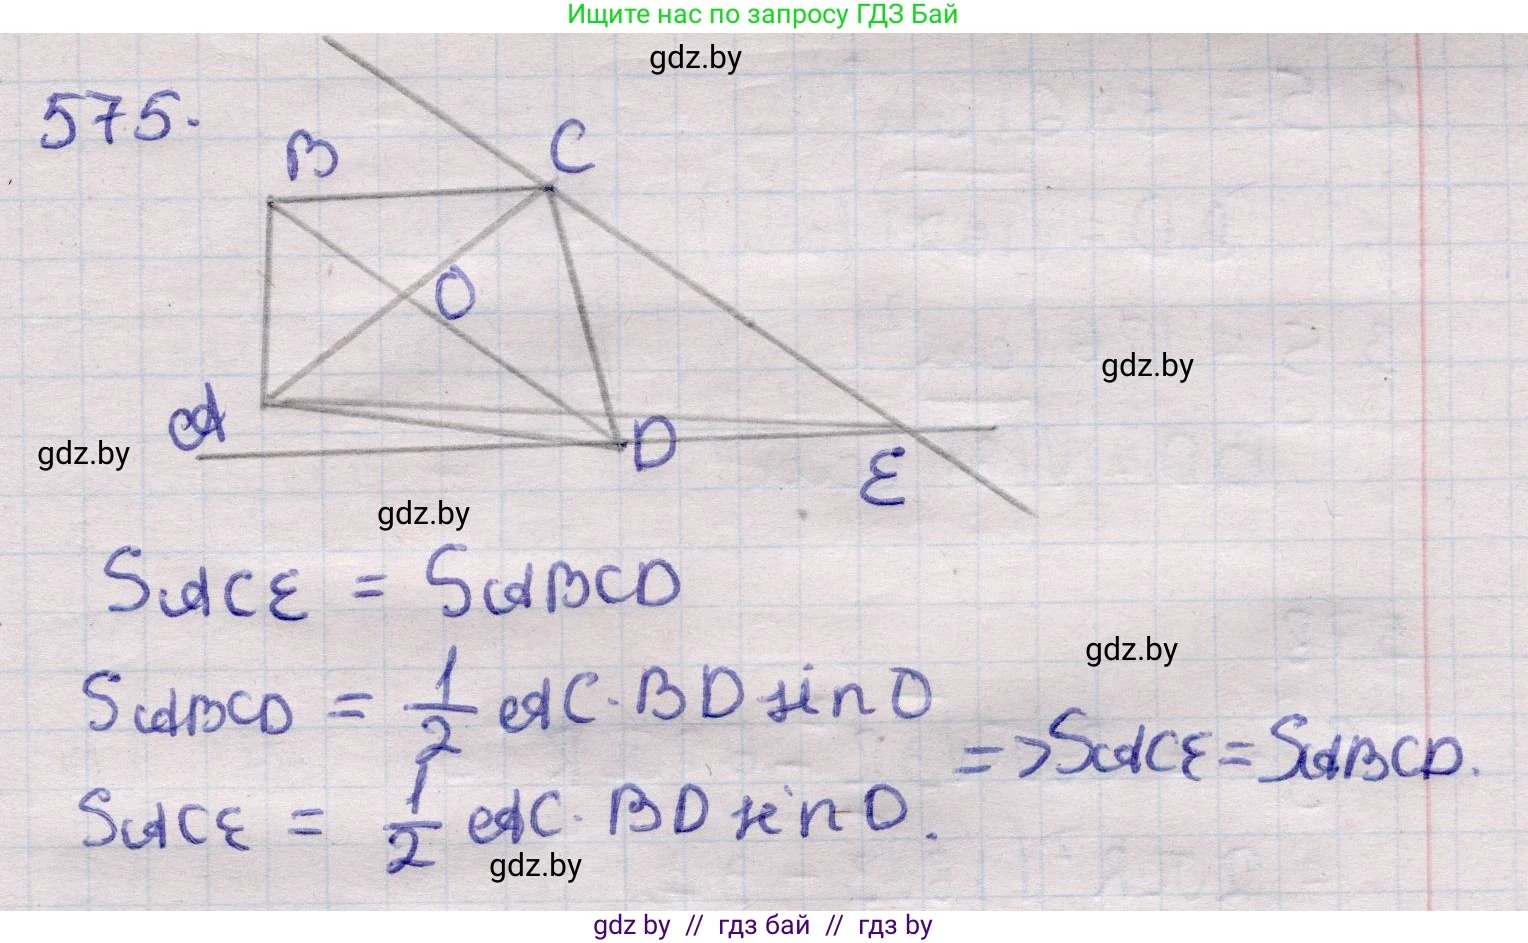 Ищите нас по запросу ГДЗ Бай
gdz.by
575.
B
C
O
gdz.by
A
D
gdz.by
E
gdz.by
SACE = SABCD
gdz.by
SABCD = 1/2 AC · BD sin O
=> SACE = SABCD.
SACE = 1/2 AC · BD sin O.
gdz.by
gdz.by // гдз бай // гдз by